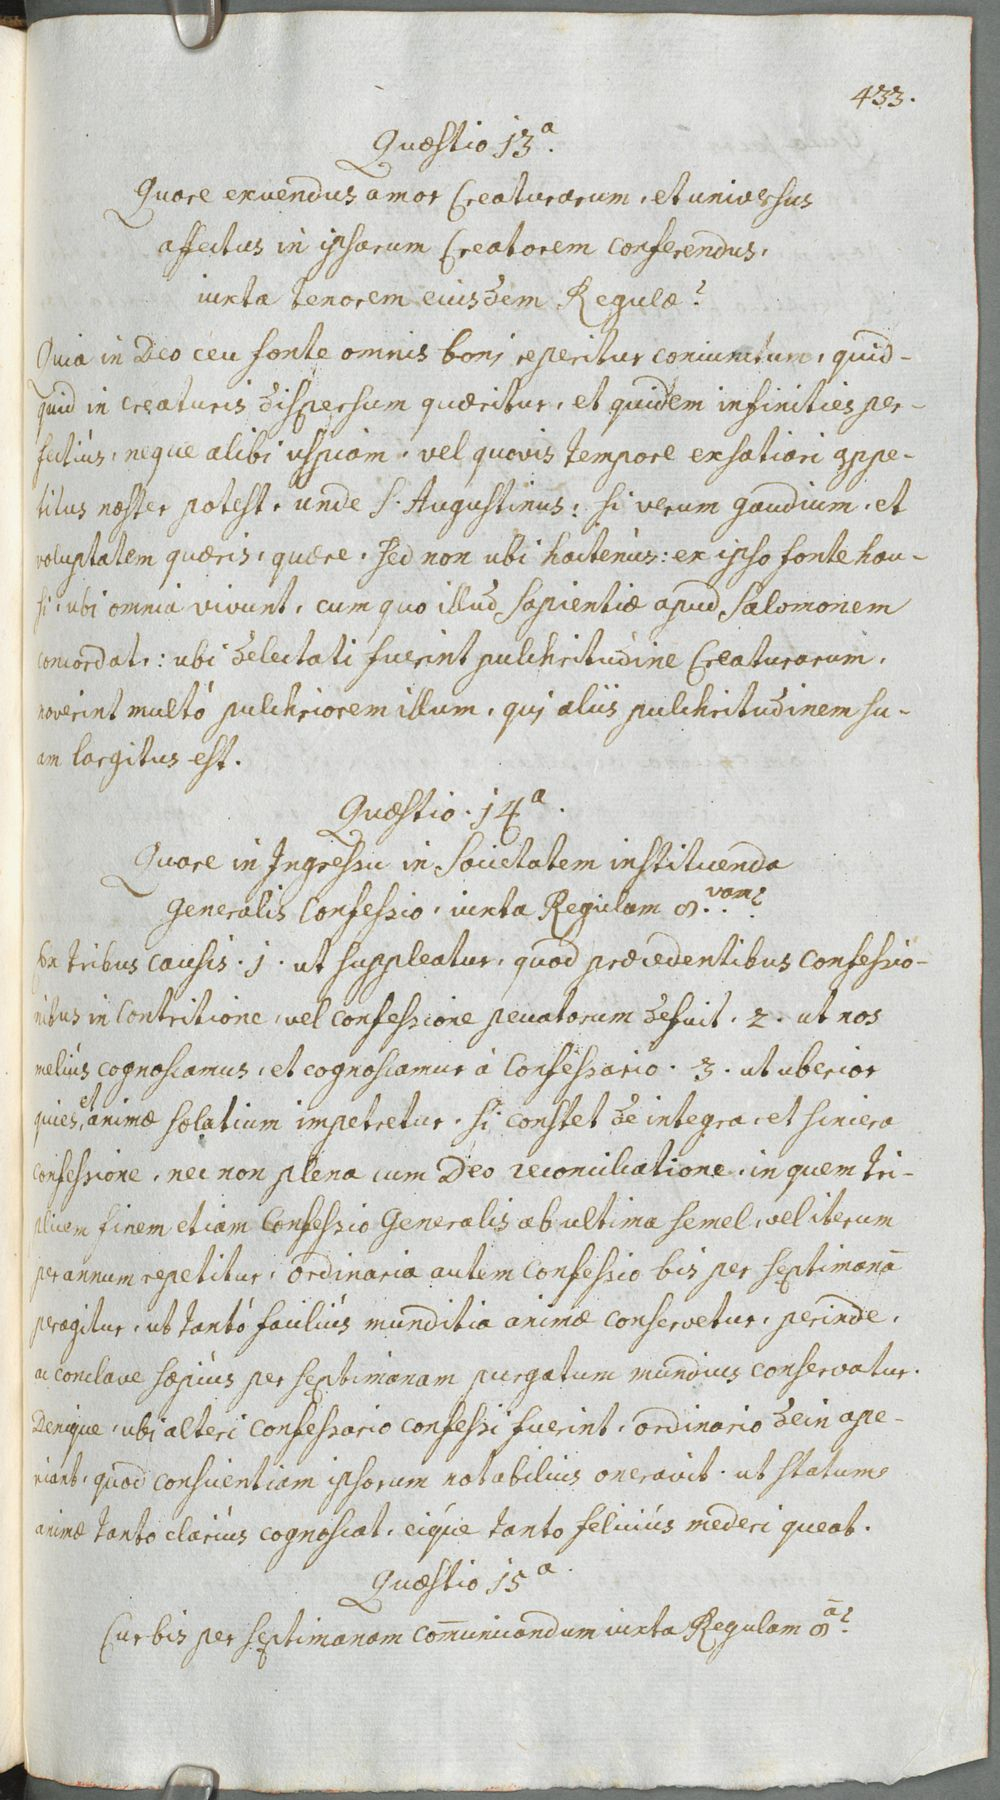 433.
Quæstio 13ᵃ.
Quare exuendus amor Creaturarum, et universus
affectus in ipsarum Creatorem conferendus,
iuxta tenorem eiusdem Regulæ?
Quia in Deo ceu fonte omnis boni reperitur coniunctum, quid-
quid in creaturis dispersum quæritur, et quidem infinities per-
fectiùs, neque alibi uspiam, vel quovis tempore exsatiari appe-
titus noster potest, unde S. Augustinus: si verum gaudium, et
voluptatem quæris, quære, sed non ubi hactenùs: ex ipso fonte hau-
si, ubi omnia vivunt, cum quo illud Sapientiæ apud Salomonem
concordat: ubi delectati fuerint pulchritudine Creaturarum,
noverint multò pulchriorem illum, qui aliis pulchritudinem su-
am largitus est.
Quæstio. 14ᵃ.
Quare in Ingressu in Societatem instituenda
Generalis Confessio, iuxta Regulam 8.vam?
Ex tribus causis. 1. ut suppleatur, quod præcedentibus Confessio-
nibus in Contritione, vel confessione peccatorum defuit. 2. ut nos
meliùs cognoscamus, et cognoscamur à Confessario. 3. ut uberior
quies, et animæ solatium impetretur, si constet de integra, et sincera
confessione, nec non plena cum Deo reconciliatione, in quem tri-
plicem finem etiam Confessio Generalis ab ultima semel, vel iterum
per annum repetitur, ordinaria autem Confessio bis per septimanā
peragitur, ut tantò faciliùs munditia animæ conservetur, perinde,
ac conclave sæpiùs per septimanam purgatum mundius conservatur.
Denique, ubi alteri Confessario confessi fuerint, ordinario dein ape-
riant, quod conscientiam ipsorum notabilius oneravit, ut statum
animæ tanto clariùs cognoscat, eique tanto feliciùs mederi queat.
Quæstio 15ᵃ.
Cur bis per septimanam com̄unicandum iuxta Regulam 8ā?